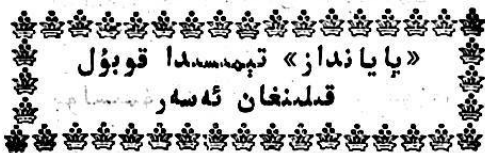 «پايانداز» تېمىسىدا قوبۇل
قىلىنغان ئەسەر